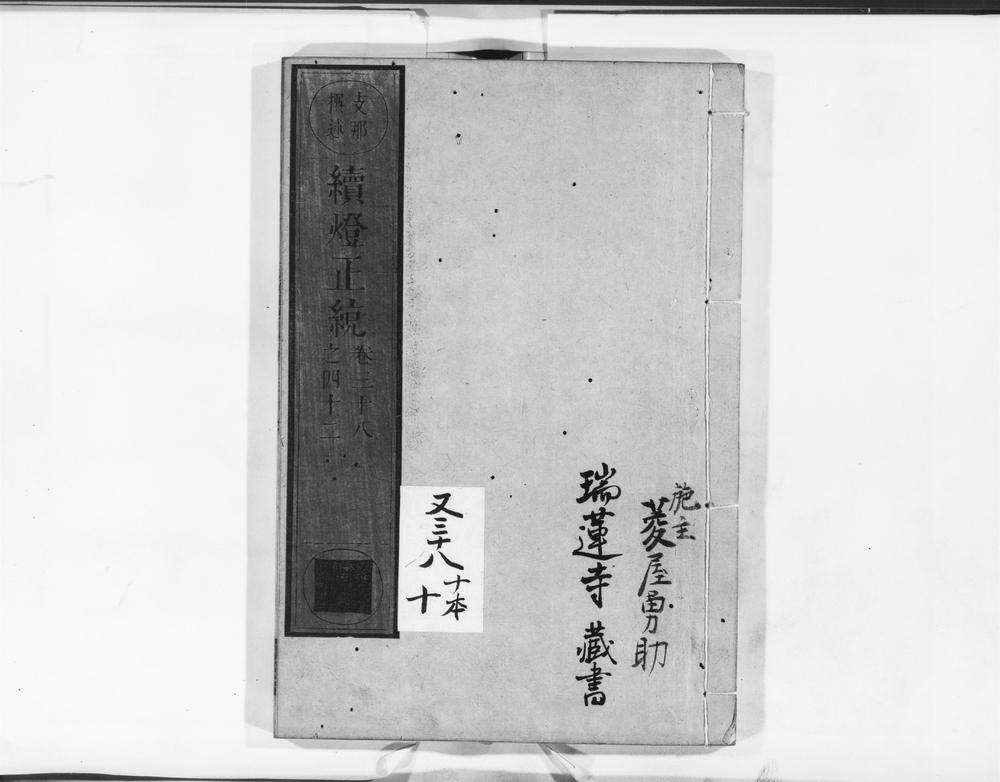 施主
菱屋勇助
瑞蓮寺 藏書
又三十八
十本
十
支那
撰述
續燈正統
卷三十八
之四十二